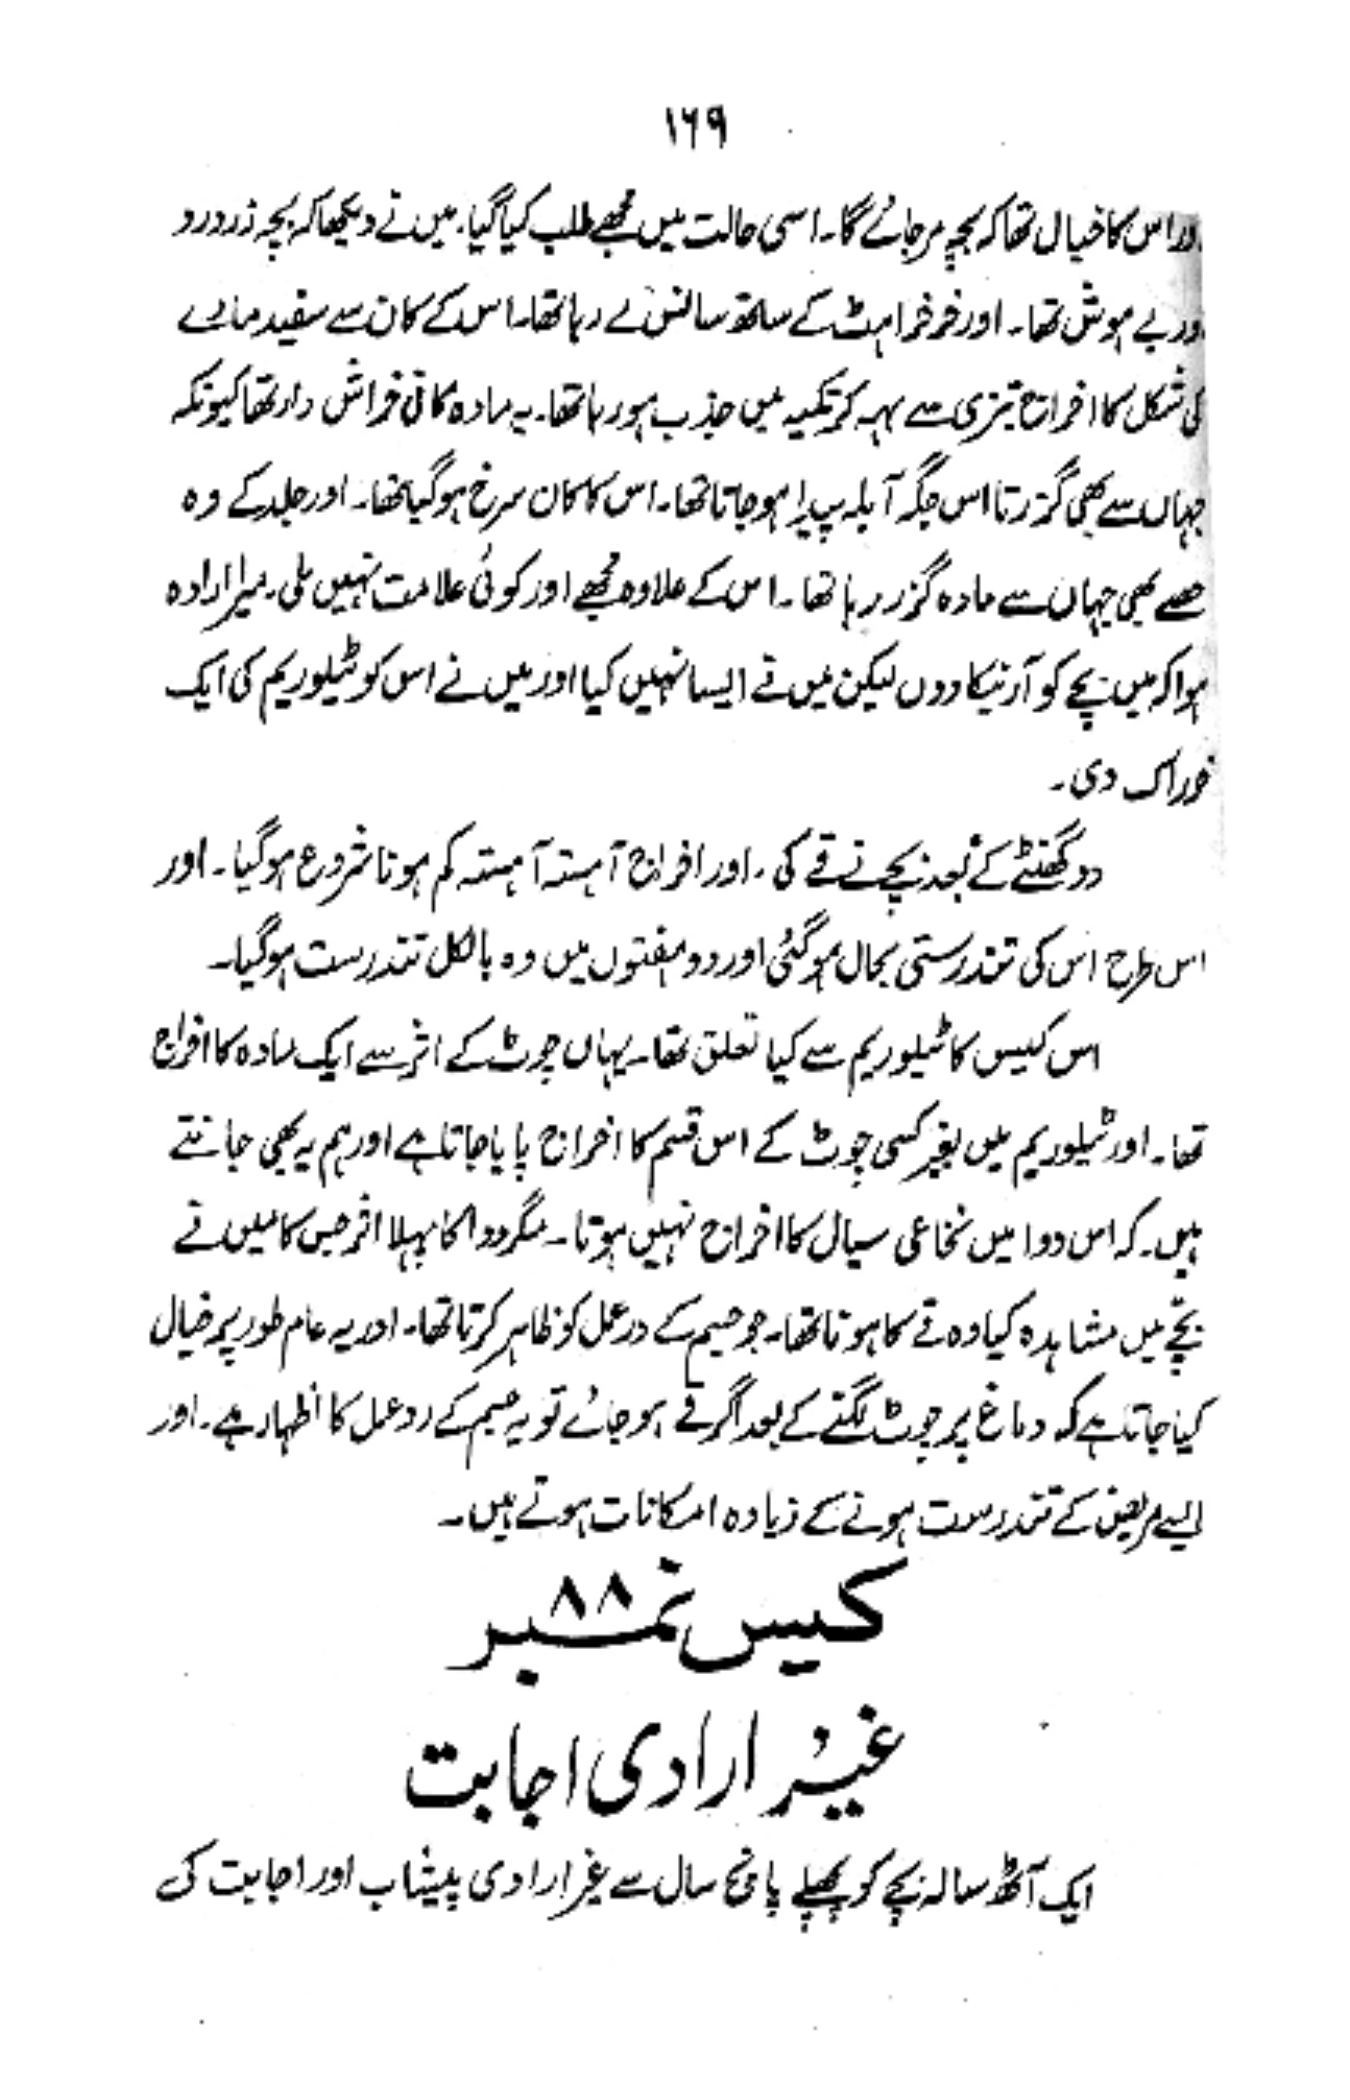 ۱۶۹
اور اس کا خیال تھا کہ بچہ مر جائے گا۔ اسی حالت میں مجھے طلب کیا گیا۔ میں نے دیکھا کہ بچہ زرد رو
اور بے ہوش تھا۔ اور خرخراہٹ کے ساتھ سانس لے رہا تھا۔ اس کے کان سے سفید مایے
کی شکل کا اخراج تیزی سے بہہ کر تکیہ میں جذب ہو رہا تھا۔ یہ مادہ کافی خراش دار تھا کیونکہ
جہاں سے بھی گزرتا اس جگہ آبلہ پیدا ہو جاتا تھا۔ اس کا کان سرخ ہو گیا تھا۔ اور جلد کے وہ
حصے بھی جہاں سے مادہ گزر رہا تھا۔ اس کے علاوہ مجھے اور کوئی علامت نہیں ملی۔ میرا ارادہ
ہوا کہ میں بچے کو آرنیکا دوں لیکن میں نے ایسا نہیں کیا اور میں نے اس کو ٹیلوریم کی ایک
خوراک دی۔
دو گھنٹے کے بعد بچے نے قے کی۔ اور اخراج آہستہ آہستہ کم ہونا شروع ہو گیا۔ اور
اس طرح اس کی تندرستی بحال ہو گئی اور دو ہفتوں میں وہ بالکل تندرست ہو گیا۔
اس کیس کا ٹیلوریم سے کیا تعلق تھا۔ یہاں چوٹ کے اثر سے ایک مادہ کا اخراج
تھا۔ اور ٹیلوریم میں بغیر کسی چوٹ کے اس قسم کا اخراج پایا جاتا ہے اور ہم یہ بھی جانتے
ہیں۔ کہ اس دوا میں نخاعی سیال کا اخراج نہیں ہوتا۔ مگر دوا کا پہلا اثر جس کا میں نے
بچّے میں مشاہدہ کیا وہ قے کا ہونا تھا۔ جو جسم کے ردعمل کو ظاہر کرتا تھا۔ اور یہ عام طور پر خیال
کیا جاتا ہے کہ دماغ پر چوٹ لگنے کے بعد اگر قے ہو جائے تو یہ جسم کے ردعمل کا اظہار ہے۔ اور
ایسے مریض کے تندرست ہونے کے زیادہ امکانات ہوتے ہیں۔
کیس نمبر ۸۸
غیر ارادی اجابت
ایک آٹھ سالہ بچے کو پچھلے پانچ سال سے غیر ارادی پیشاب اور اجابت کی